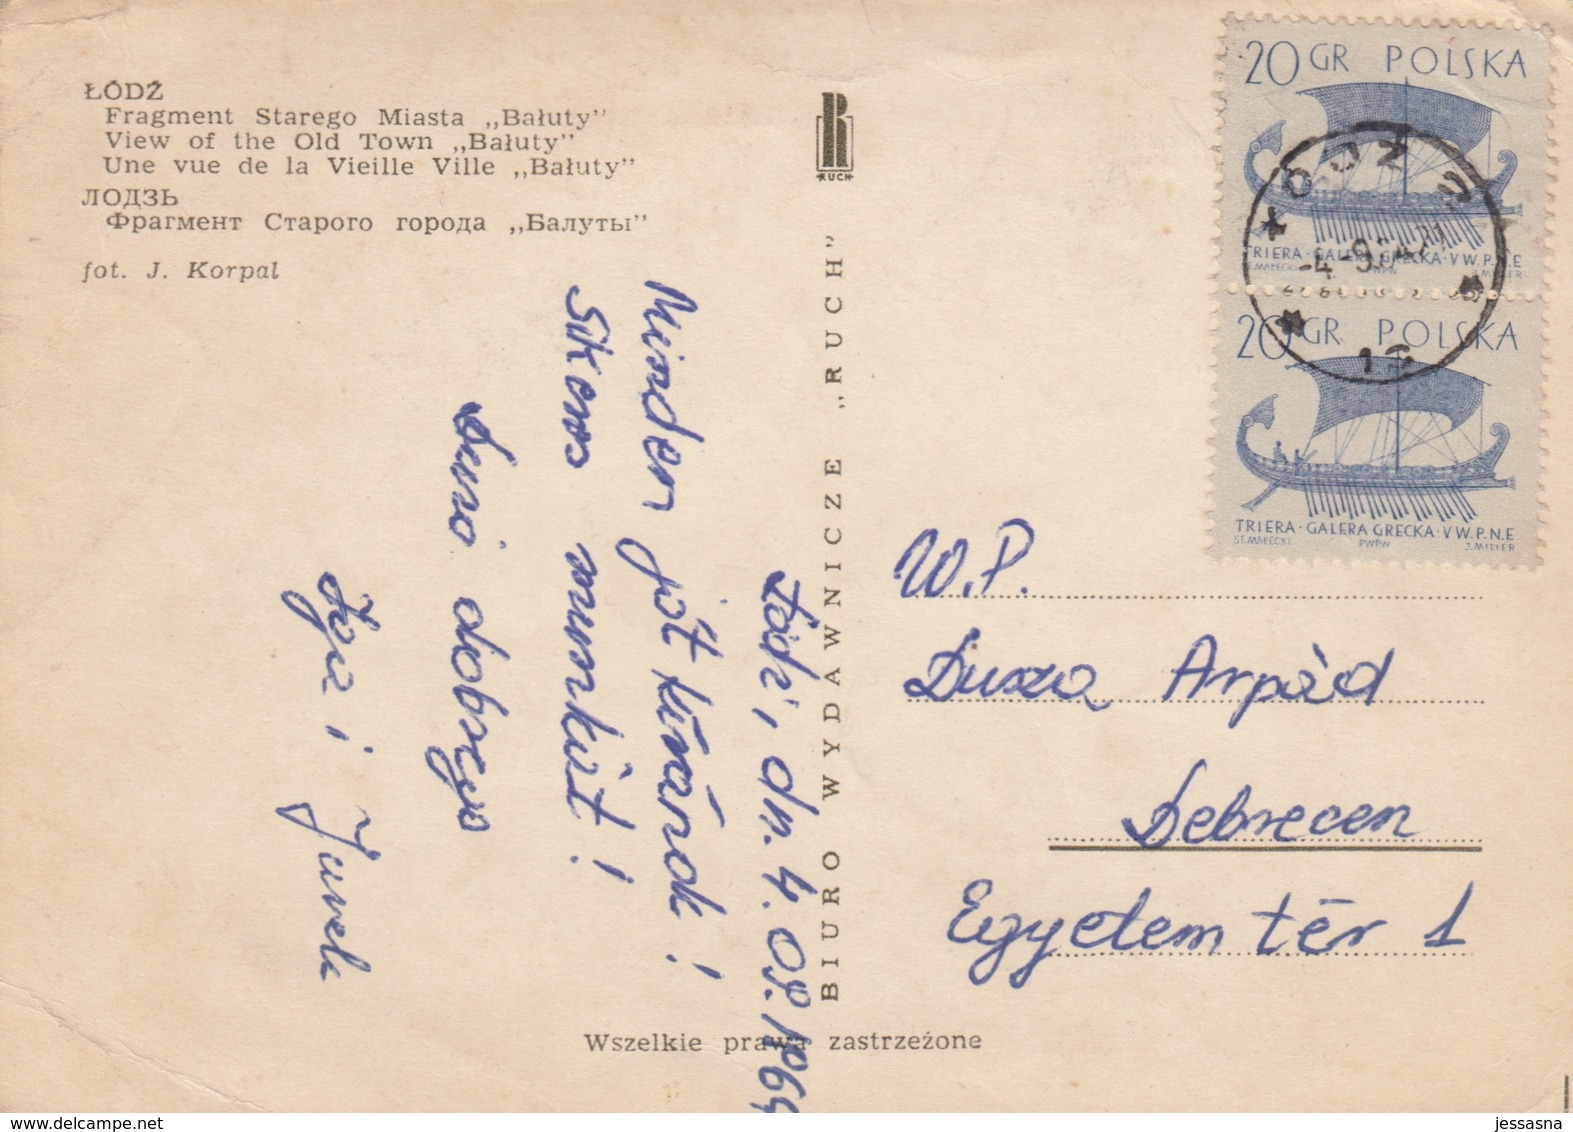 ŁÓDŹ
Fragment Starego Miasta „Bałuty”
View of the Old Town „Bałuty”
Une vue de la Vieille Ville „Bałuty”
ЛОДЗЬ
Фрагмент Старого города „Балуты”
fot. J. Korpal
RUCH
BIURO WYDAWNICZE „RUCH”
Łódź, dn. 4. 09. 1964
Minden jót kívánok!
Sikeres munkát!
dobrego
i Jurek
20 GR POLSKA
TRIERA · GALERA GRECKA · V W. P.N.E
ST. MAŁECKI PWPW J. MILLER
20 GR POLSKA
TRIERA · GALERA GRECKA · V W. P.N.E
ST. MAŁECKI PWPW J. MILLER
W.P.
Dusza Arpád
Debrecen
Egyetem tér 1
Wszelkie prawa zastrzeżone
jessasna